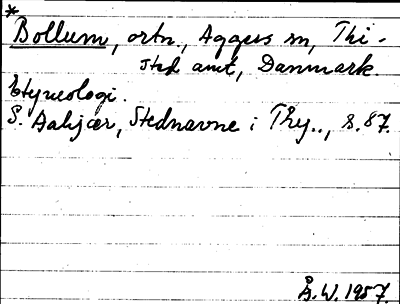 *
Bollum, ortn., Aggers sn, Thi-
sted amt, Danmark.
Etymologi.
S. Aakjær, Stednavne i Thy.., s. 87.
Å.W. 1957.